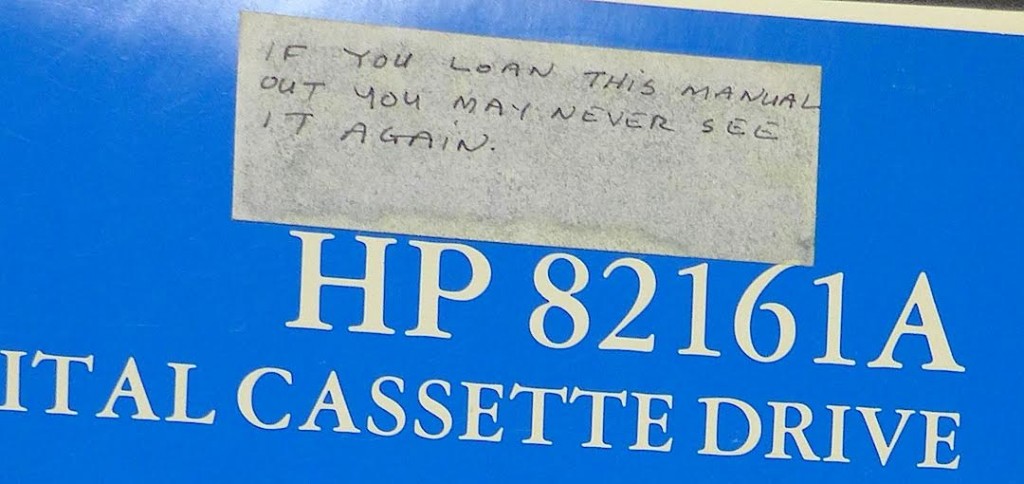 IF YOU LOAN THIS MANUAL
OUT YOU MAY NEVER SEE
IT AGAIN.
HP 82161A
ITAL CASSETTE DRIVE